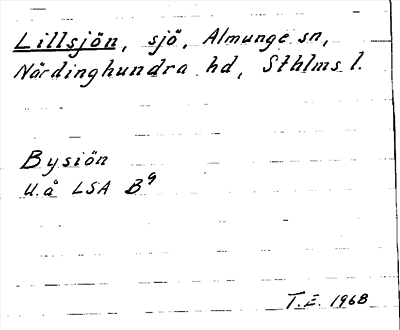 Lillsjön, sjö, Almunge sn,
Närdinghundra hd, Sthlms l.
Bysjön
U.å LSA B⁹
T.E. 1968